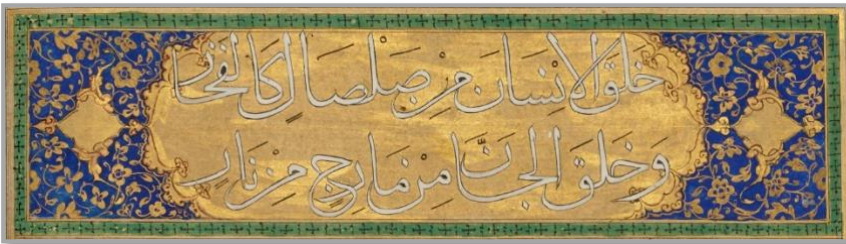 خلق الانسان من صلصال كالفخار
وخلق الجانّ من مارج من نار